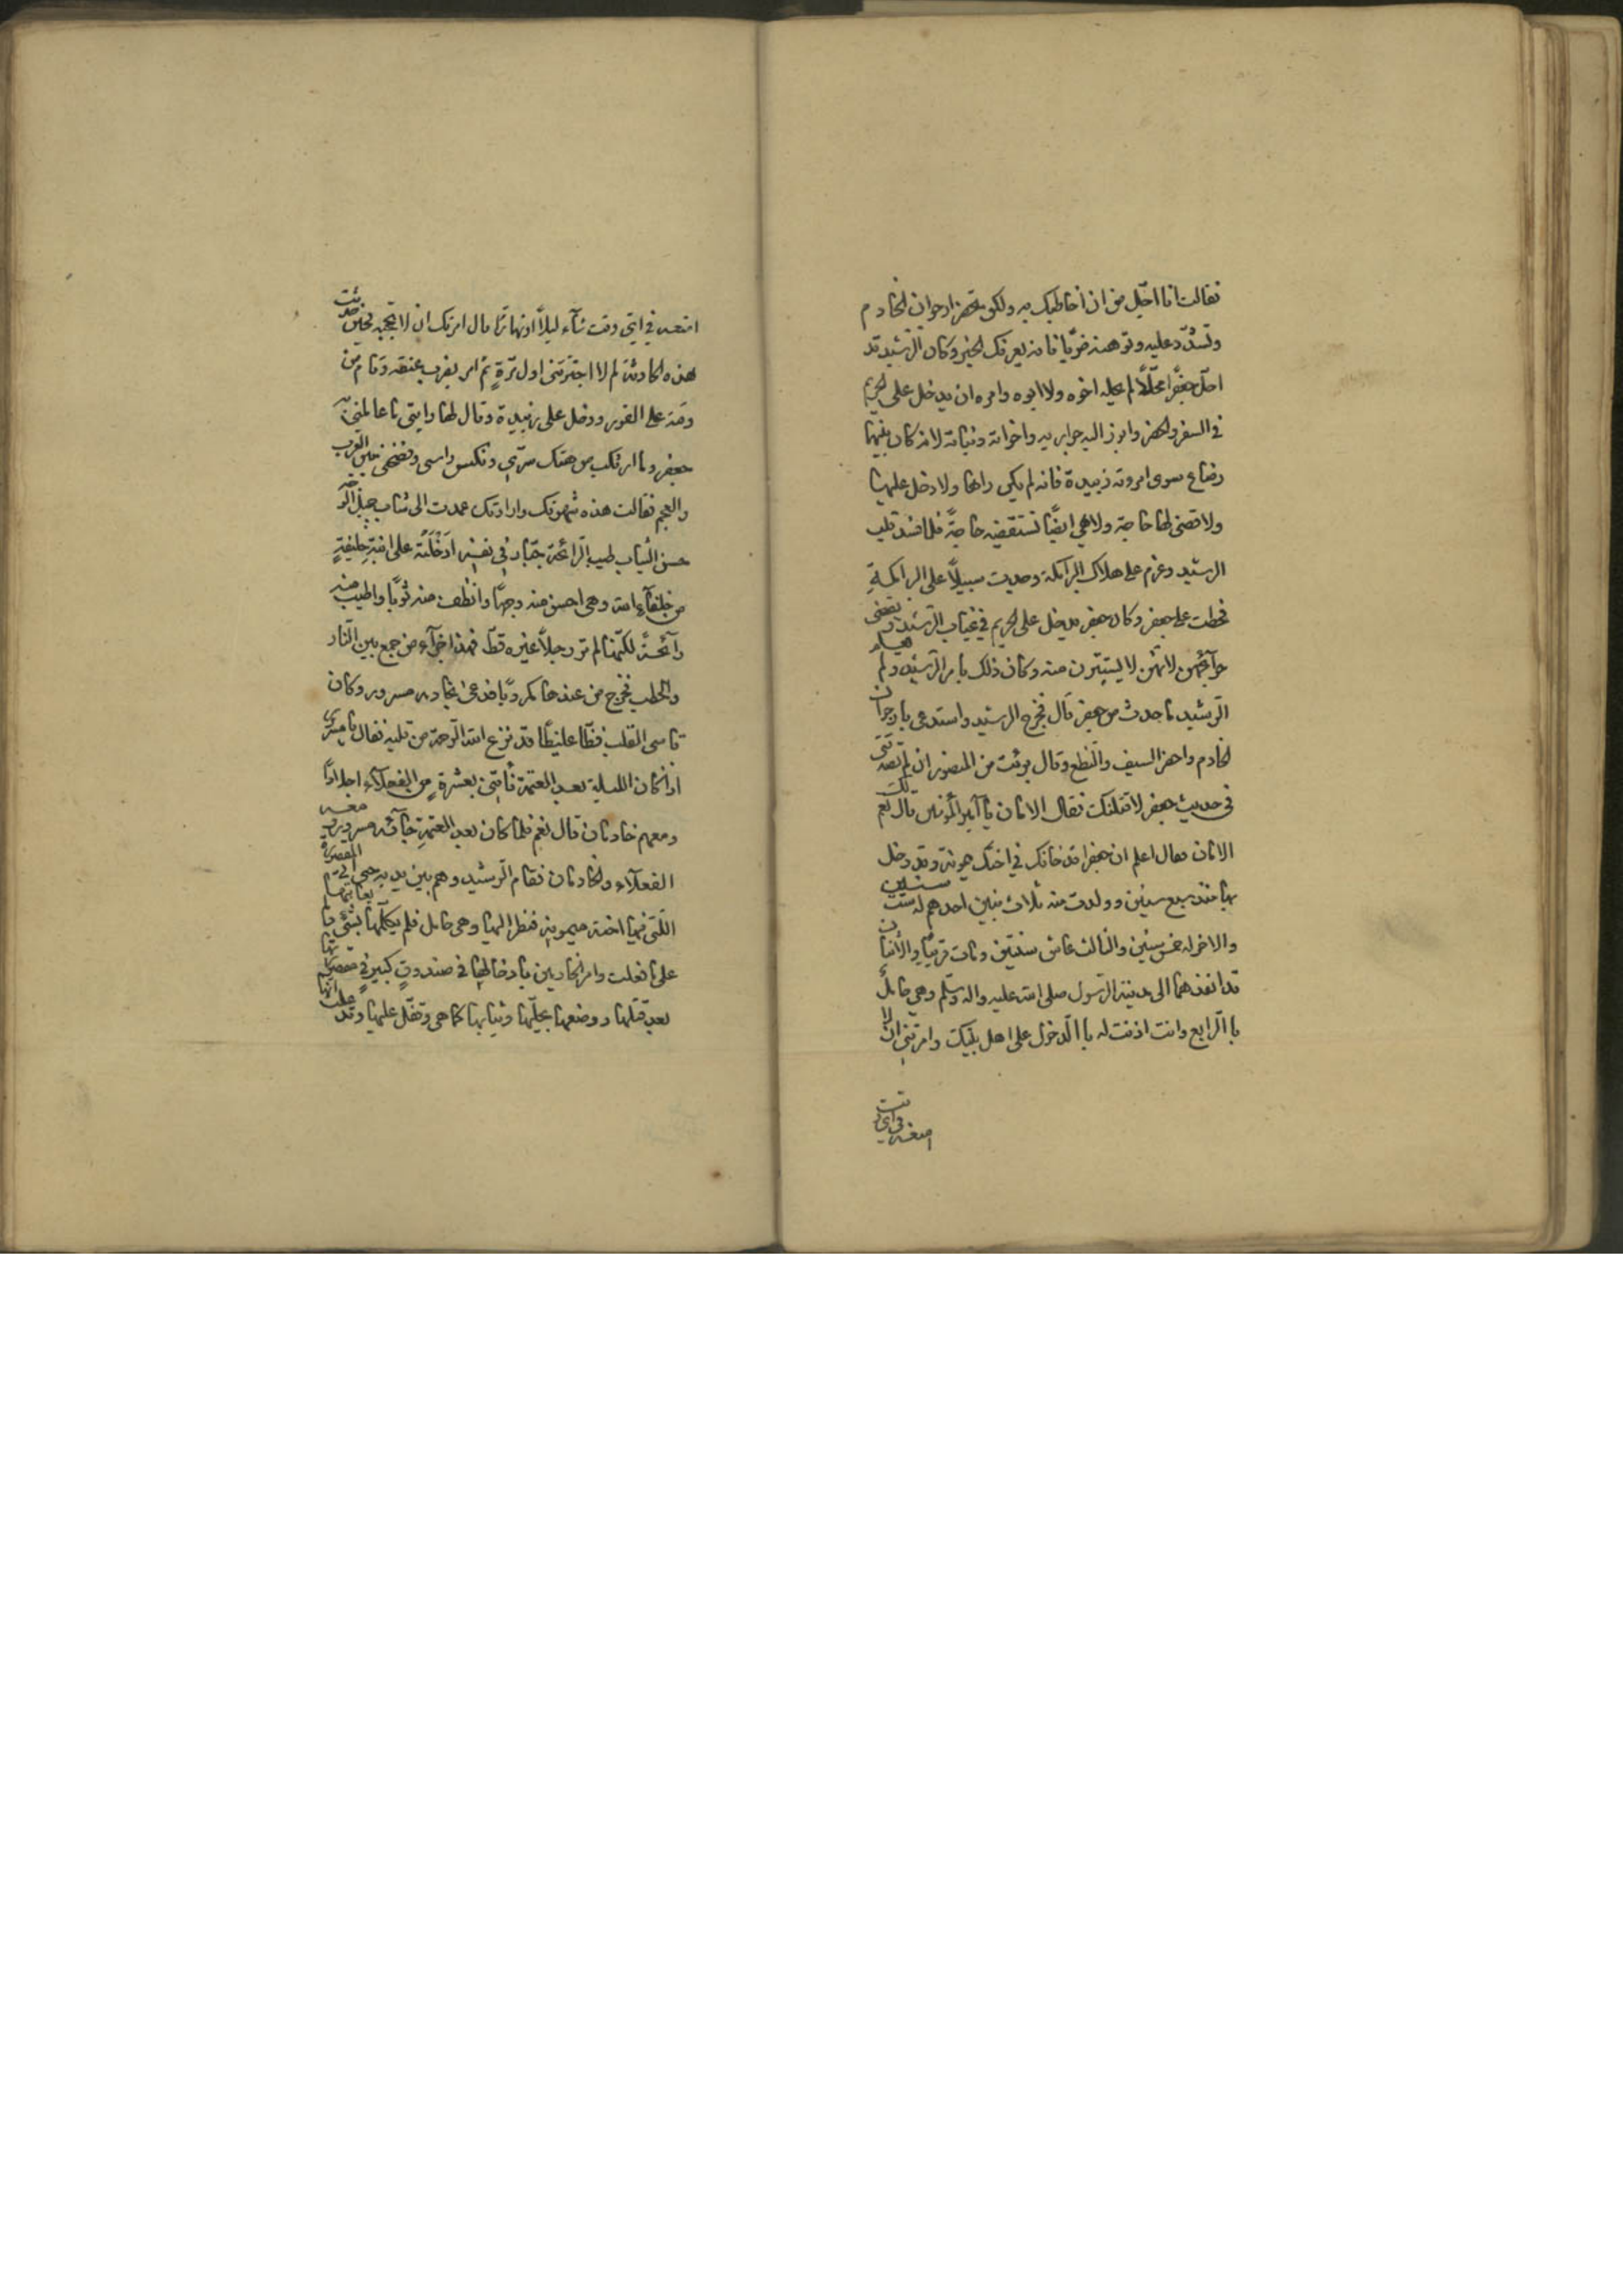 فقالت انا اجل من ان اخاطبك به ولكن تحضر ارجوان الخادم
وتشدد عليه وتوهنه ضربًا فانه يعرفك الخبر وكان الرشيد قد
احل جعفرًا محلًا لم يحله اخوه ولا ابوه وامره ان يدخل على الحريم
في السفر والحضر وابرز اليه جواريه واخواته وبناته لانه كان بينهما
رضاع سوى امروته زبيدة فانه لم يكن راها ولا دخل عليها
ولا قضى لها حاجة ولا هي ايضًا تستقضيه حاجةً فلما فسد قلب
الرشيد وعزم على هلاك البرامكة وجدت سبيلًا على البرامكة
فحطت على جعفر وكان جعفر يدخل على الحريم في غياب الرشيد ويقضي
حوآئجهن لانهن لا يستترن منه وكان ذلك بامر الرشيد ولم يعلم
الرشيد ما حدث من جعفر قال فخرج الرشيد واستدعى بارجوان
الخادم واحضر السيف والنطع وقال برئت من المنصور ان لم تصدقني
في حديث جعفر لاقتلنك فقال الامان يا آمير المؤمنين قال نعم لك
الامان فقال اعلم ان جعفرا قد خانك في اختك ميمونة وقد دخل
بها منذ سبع سنين وولدت منه ثلاث بنين احدهم له ست سنين
والاخر له خمس سنين والثالث عاش سنتين ومات قريبًا والاثنان
قد انفذهما الى مدينة الرسول صلى الله عليه واله وسلم وهي حاملٌ
با الرابع وانت اذنت له با الدخول على اهل بيتك وامرتني ان لا
امنعه في اي وقت
امنعه في ايّ وقت شآء ليلًا او نهارًا قال امرتك ان لا تحجبه فحين حدثت
هذه الحادثة لم لا اخبرتني اول مرّةٍ ثم امر بضرب عنقه وقام من
وقته على الفور ودخل على زبيدة وقال لها رايتي ما عاملني به
جعفر وما ارتكب من هتك ستري ونكس راسي وفضحني بين العرب
والعجم فقالت هذه شهوتك وارادتك عمدت الى شاب جميل الوجه
حسن الثياب طيب الرائحة جبّار في نفسه ادخلته على ابنة خليفةٍ
من خلفآء الله وهي احسن منه وجهًا وانظف منه ثوبًا واطيب منه
رآئحةً لكنها لم تر رجلًا غيره قط فهذا جزآء من جمع بين النار
والحطب فخرج من عندها مكروبًا فدعى بخادمه مسرور وكان
قاسي القلب فظّا غليظًا قد نزع الله الرحمة من قلبه فقال يا مسرور
اذا كان الليلة بعد العتمة فأتني بعشرةٍ من الفعلآء اجلادًا
ومعهم خادمان قال نعم فلما كان بعد العتمةِ جآئه مسرور ومعه
الفعلآء والخادمان فقام الرشيد وهم بين يديه حتى اتى المقصورة
اللتي فيها اخته ميمونه فنظر اليها وهي حامل فلم يكلمها بشيءٍ ولم يعاتبها
على ما فعلت وامر الخادمين بادخالها في صندوق كبير في مقصورتها
بعد قتلها ووضعها بحليّها وثيابها كما هي وقفل عليها وقد علمت انها